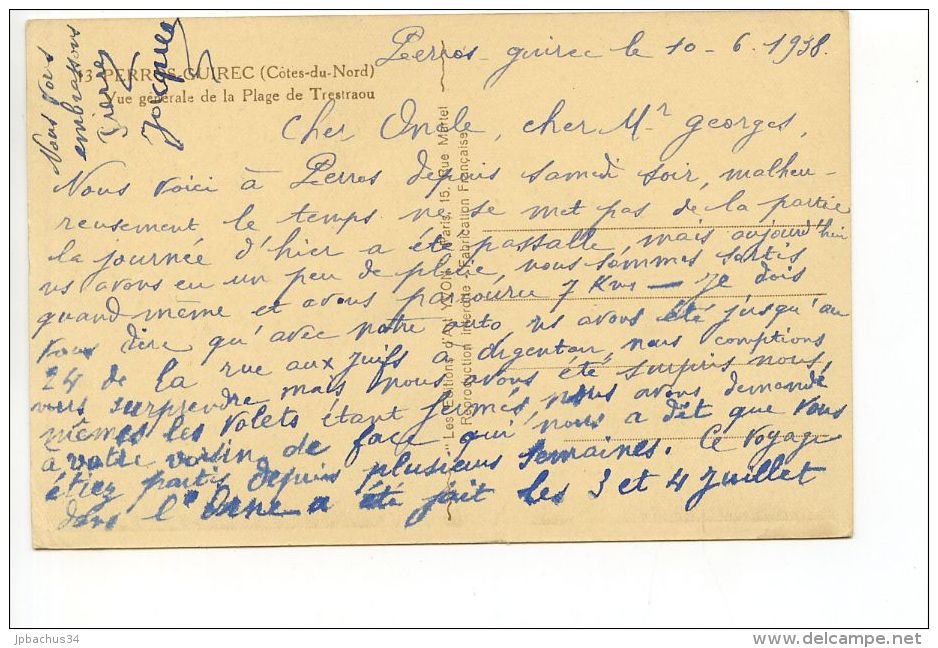 Perros-guirec le 10-6. 1938.
33 - PERROS-GUIREC (Côtes-du-Nord)
Vue générale de la Plage de Trestraou
Cher Oncle, cher Mr georges,
Nous voici à Perros depuis samedi soir, malheu-
reusement le temps ne se met pas de la partie
la journée d'hier a été passable, mais aujourd'hui
ns avons eu un peu de pluie, nous sommes sortis
quand même et avons parcouru 7 Kms — Je dois
vous dire qu'avec notre auto, ns avons été jusqu'au
24 de la rue aux juifs à Argentan, nous comptions
vous surprendre mais nous avons été surpris nous,
mêmes les volets étant fermés, nous avons demandé
à votre voisin de face qui nous a dit que vous
étiez partis depuis plusieurs semaines. Ce voyage
dans l'Orne a été fait les 3 et 4 juillet
Nous vous
embrassons
Pierre
Jacques
"Les Editions d'Art YVON", Paris, 15, Rue Martel
Reproduction Interdite - Fabrication Française
jpbachus34
www.delcampe.net